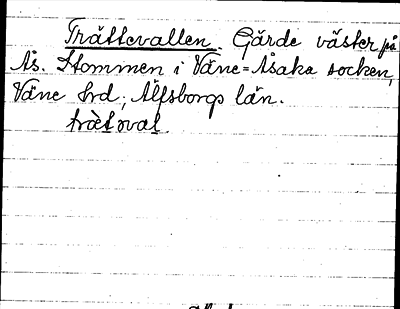 Trättevallen. Gärde väster på
Ås. Stommen i Väne-Åsaka socken,
Väne hrd, Älfsborgs län.
trætoval.